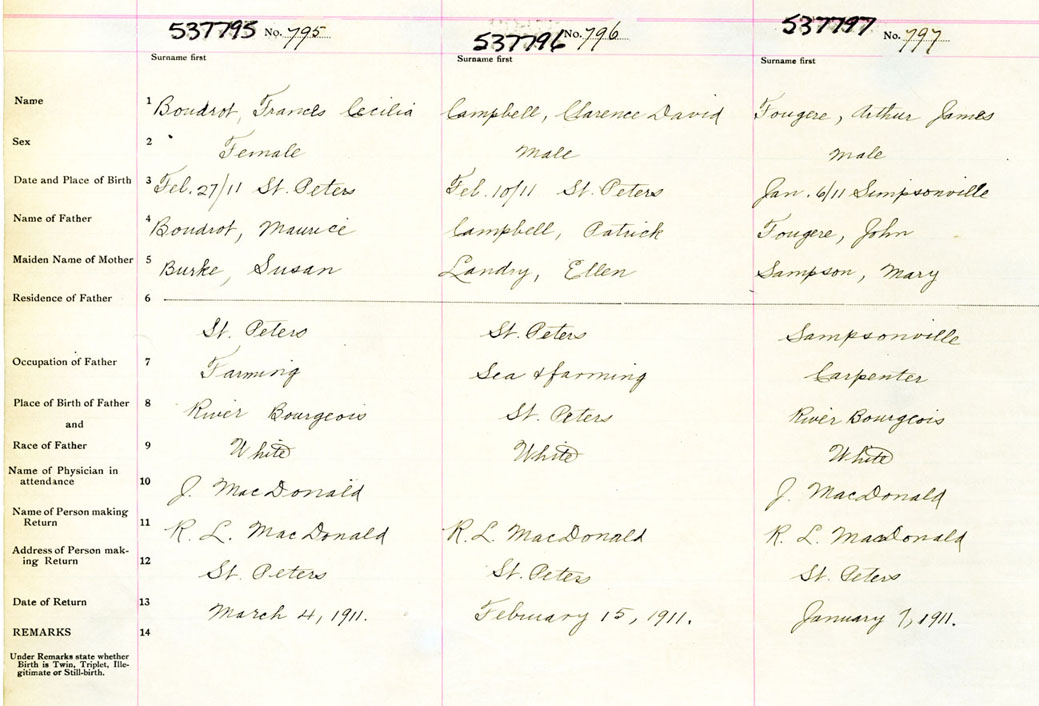 537795 No. 795 537796 No. 796 537797 No. 797
Surname first Surname first Surname first
Name 1 Boudrot, Francis Cecilia Campbell, Clarence David Fougere, Arthur James
Sex 2 Female Male Male
Date and Place of Birth 3 Feb. 27/11 St. Peters Feb. 10/11 St. Peters Jan. 6/11 Simpsonville
Name of Father 4 Boudrot, Maurice Campbell, Patrick Fougere, John
Maiden Name of Mother 5 Burke, Susan Landry, Ellen Sampson, Mary
Residence of Father 6
St. Peters St. Peters Sampsonville
Occupation of Father 7 Farming Sea & farming Carpenter
Place of Birth of Father 8 River Bourgeois St. Peters River Bourgeois
and
Race of Father 9 White White White
Name of Physician in
attendance 10 J. MacDonald J. MacDonald
Name of Person making
Return 11 R. L. MacDonald R. L. MacDonald R. L. MacDonald
Address of Person mak-
ing Return 12 St. Peters St. Peters St. Peters
Date of Return 13 March 4, 1911. February 15, 1911. January 7, 1911.
REMARKS 14
Under Remarks state whether
Birth is Twin, Triplet, Ille-
gitimate or Still-birth.